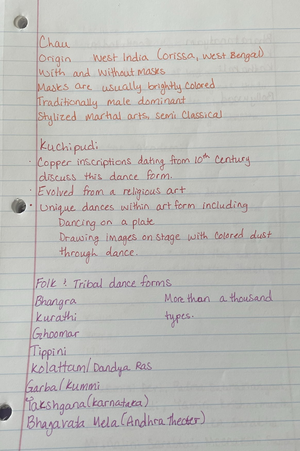 Chau
Origin West India (Orissa, West Bengal)
With and Without Masks
Masks are usually brightly colored
Traditionally male dominant
Stylized martial arts, semi classical
Kuchipudi
· Copper inscriptions dating from 10th Century
discuss this dance form.
· Evolved from a religious art
· Unique dances within art form including
Dancing on a plate
Drawing images on stage with colored dust
through dance.
Folk & Tribal dance forms
Bhangra More than a thousand
Kurathi types.
Ghoomar
Tippini
Kolattam/Dandya Ras
Garba/Kummi
Yakshgana (Karnataka)
Bhagavata Mela (Andhra Theater)